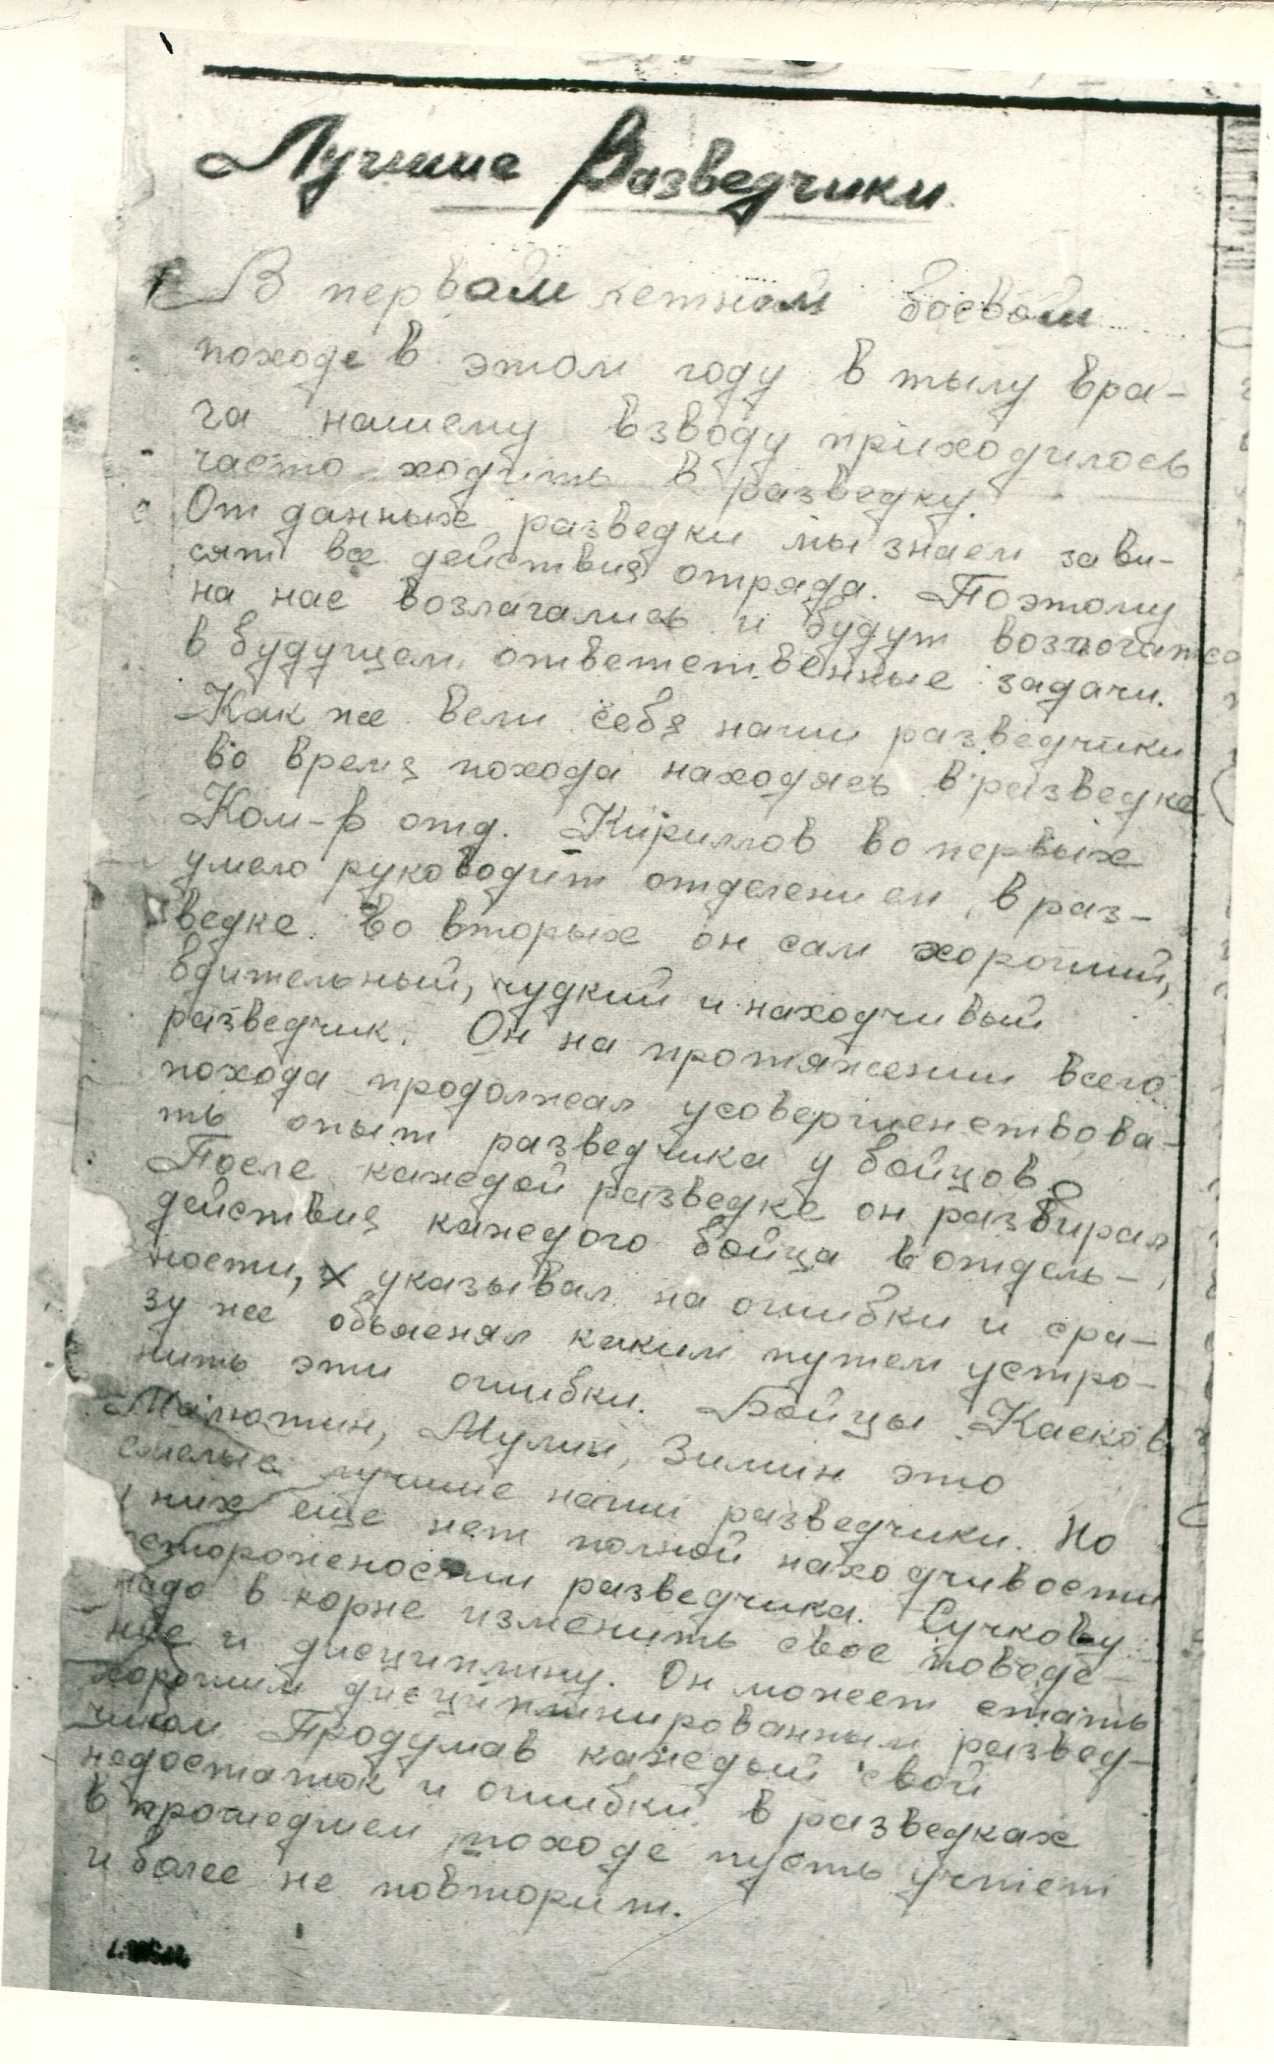 Лучшие Разведчики
В первом летнем боевом
походе в этом году в тылу вра-
га нашему взводу приходилось
часто ходить в разведку.
От данных разведки мы знаем зави-
сят все действия отряда. Поэтому
на нас возлагались и будут возлагатся
в будущем ответственные задачи.
Как же вели себя наши разведчики
во время похода находясь в разведке
Ком-р отд. Кириллов во первых
умело руководит отделением в раз-
ведке. Во вторых он сам хороший,
бдительный, чудкий и находчивый
разведчик. Он на протяжении всего
похода продолжал усовершенствова-
ть опыт разведчика у бойцов.
После каждой разведке он разбирал
действия каждого бойца в отдель-
ности, указывал на ошибки и сра-
зу же объяснял каким путем устро-
нить эти ошибки. Бойцы Касков
Малютин, Мулин, Зимин это
смелые лучшие наши разведчики. Но
у них еще нет полной находчивости
осторожености разведчика. Сучкову
надо в корне изменить свое поведе-
ние и дисциплину. Он может стать
хорошим дисциплинированным развед-
чиком Продумав каждый свой
недостаток и ошибки в разведках
в прошедшем походе пусть учтет
и более не повторит.